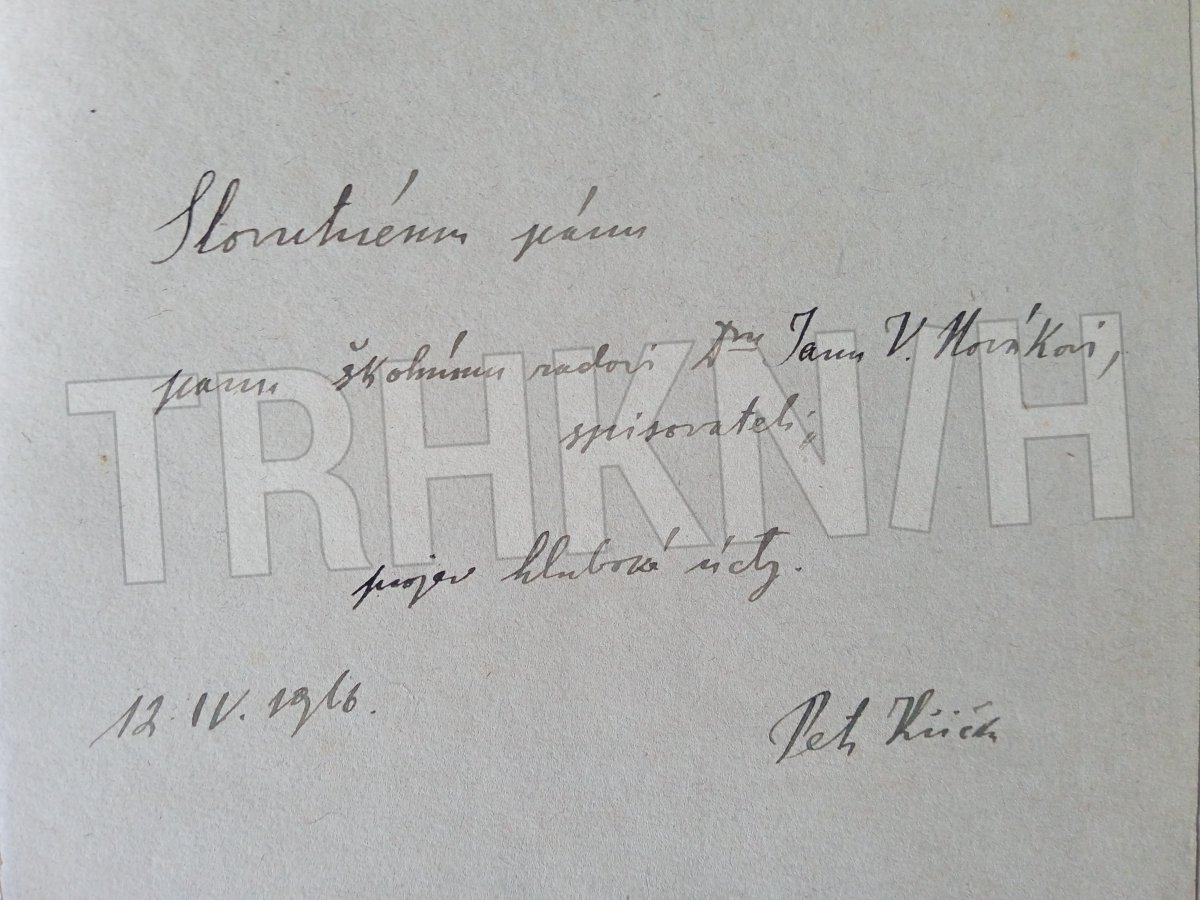 Slovutnému pánu
panu školnímu radovi Dru Janu V. Novákovi,
spisovateli,
projev hluboké úcty.
12. IV. 1916.
Petr Křička
TRHKNIH